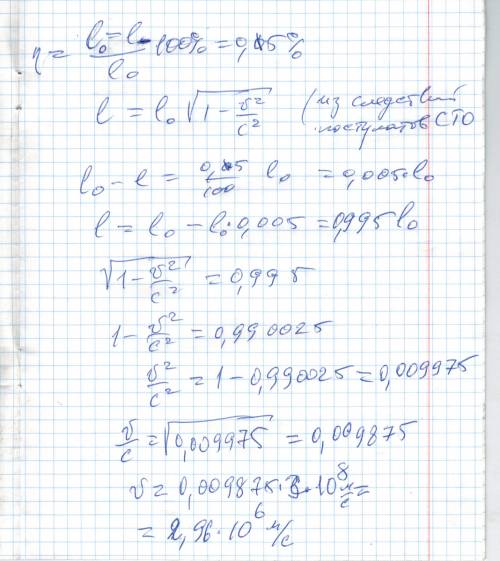 η = (l₀ - l)/l₀ 100% = 0,5%
l = l₀ √(1 - v²/c²) (из следствий
постулатов СТО
l₀ - l = 0,5/100 l₀ = 0,005·l₀
l = l₀ - l₀·0,005 = 0,995 l₀
√(1 - v²/c²) = 0,995
1 - v²/c² = 0,990025
v²/c² = 1 - 0,990025 = 0,009975
v/c = √0,009975 = 0,009875
v = 0,009875·3·10⁸ м/с =
= 2,96·10⁶ м/с